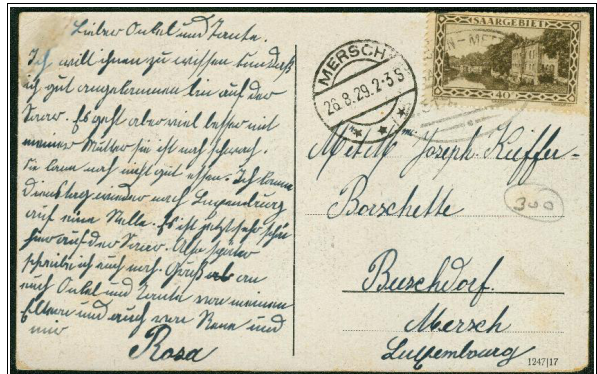 Lieber Onkel und Tante.
Ich will ihnen zu wissen tun daß
ich gut angekommen bin auf der
Saar. Es geht aber viel besser mit
meiner Mutter sie ist noch schwach.
Sie kann noch nicht gut essen. Ich komme
Dienstag wieder nach Luxemburg
auf eine Stelle. Es ist jetzt sehr schön
hier auf der Saar. Also später
schreibe ich euch noch. Gruß an
euch Onkel und Tante von meinen
Eltern und auch von Rene und
mir
Rosa
MERSCH
26.8.29.2-3S
SAARGEBIET
40
Joseph Kieffer-
Borschette
300
Buschdorf.
Mersch
Luxembourg
1247|17